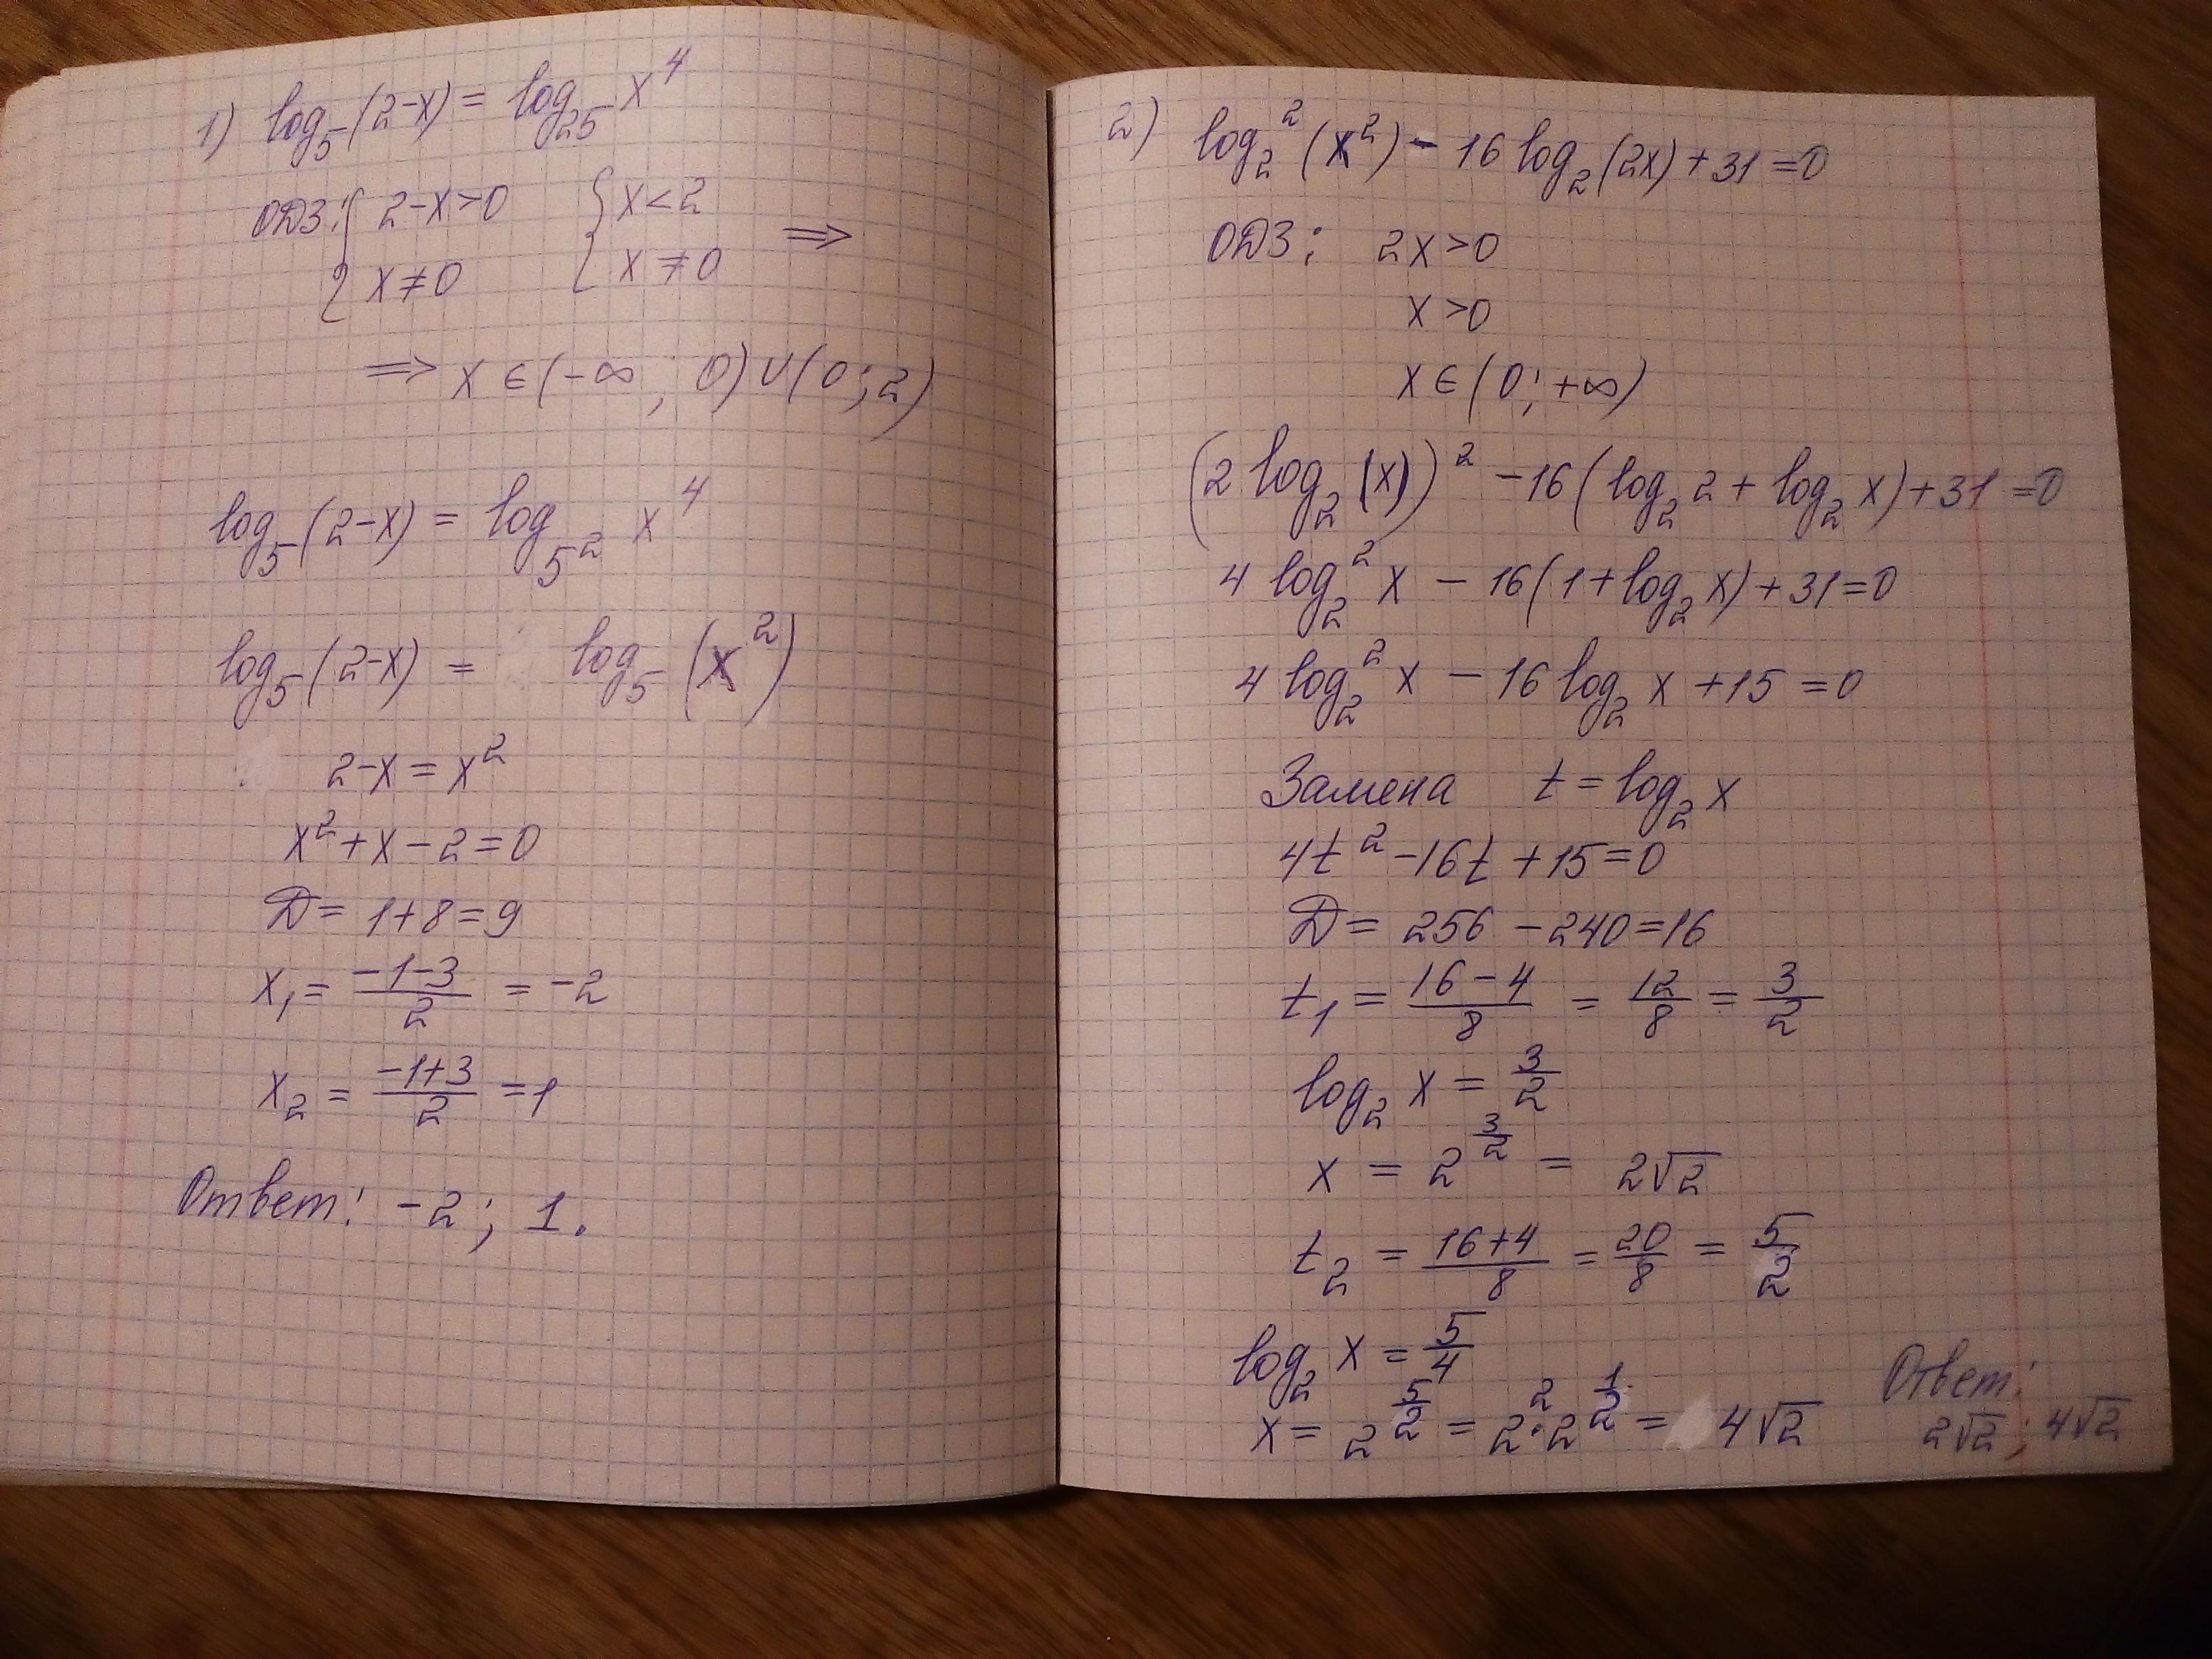 1) log₅(2-x) = log₂₅ x⁴
ОДЗ: { 2-x>0 { x<2 ⇒
{ x≠0 { x≠0
⇒ x ∈ (-∞; 0) ∪ (0; 2)
log₅(2-x) = log₅² x⁴
log₅(2-x) = log₅(x²)
2-x = x²
x²+x-2=0
D = 1+8=9
x₁ = (-1-3)/2 = -2
x₂ = (-1+3)/2 = 1
Ответ: -2; 1.
2) log₂²(x²) - 16 log₂(2x) + 31 = 0
ОДЗ: 2x>0
x>0
x ∈ (0; +∞)
(2 log₂(x))² - 16(log₂2 + log₂x) + 31 = 0
4 log₂² x - 16(1+log₂x) + 31 = 0
4 log₂² x - 16 log₂ x + 15 = 0
Замена t = log₂ x
4t² - 16t + 15 = 0
D = 256 - 240 = 16
t₁ = (16-4)/8 = 12/8 = 3/2
log₂ x = 3/2
x = 2^(3/2) = 2√2
t₂ = (16+4)/8 = 20/8 = 5/2
log₂ x = 5/4
x = 2^(5/2) = 2²·2^(1/2) = 4√2
Ответ:
2√2; 4√2